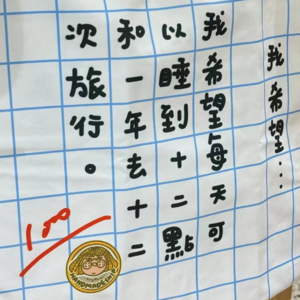 我希望：
我希望每天可
以睡到十二點
和一年去十二
次旅行。
100
HANDMADE